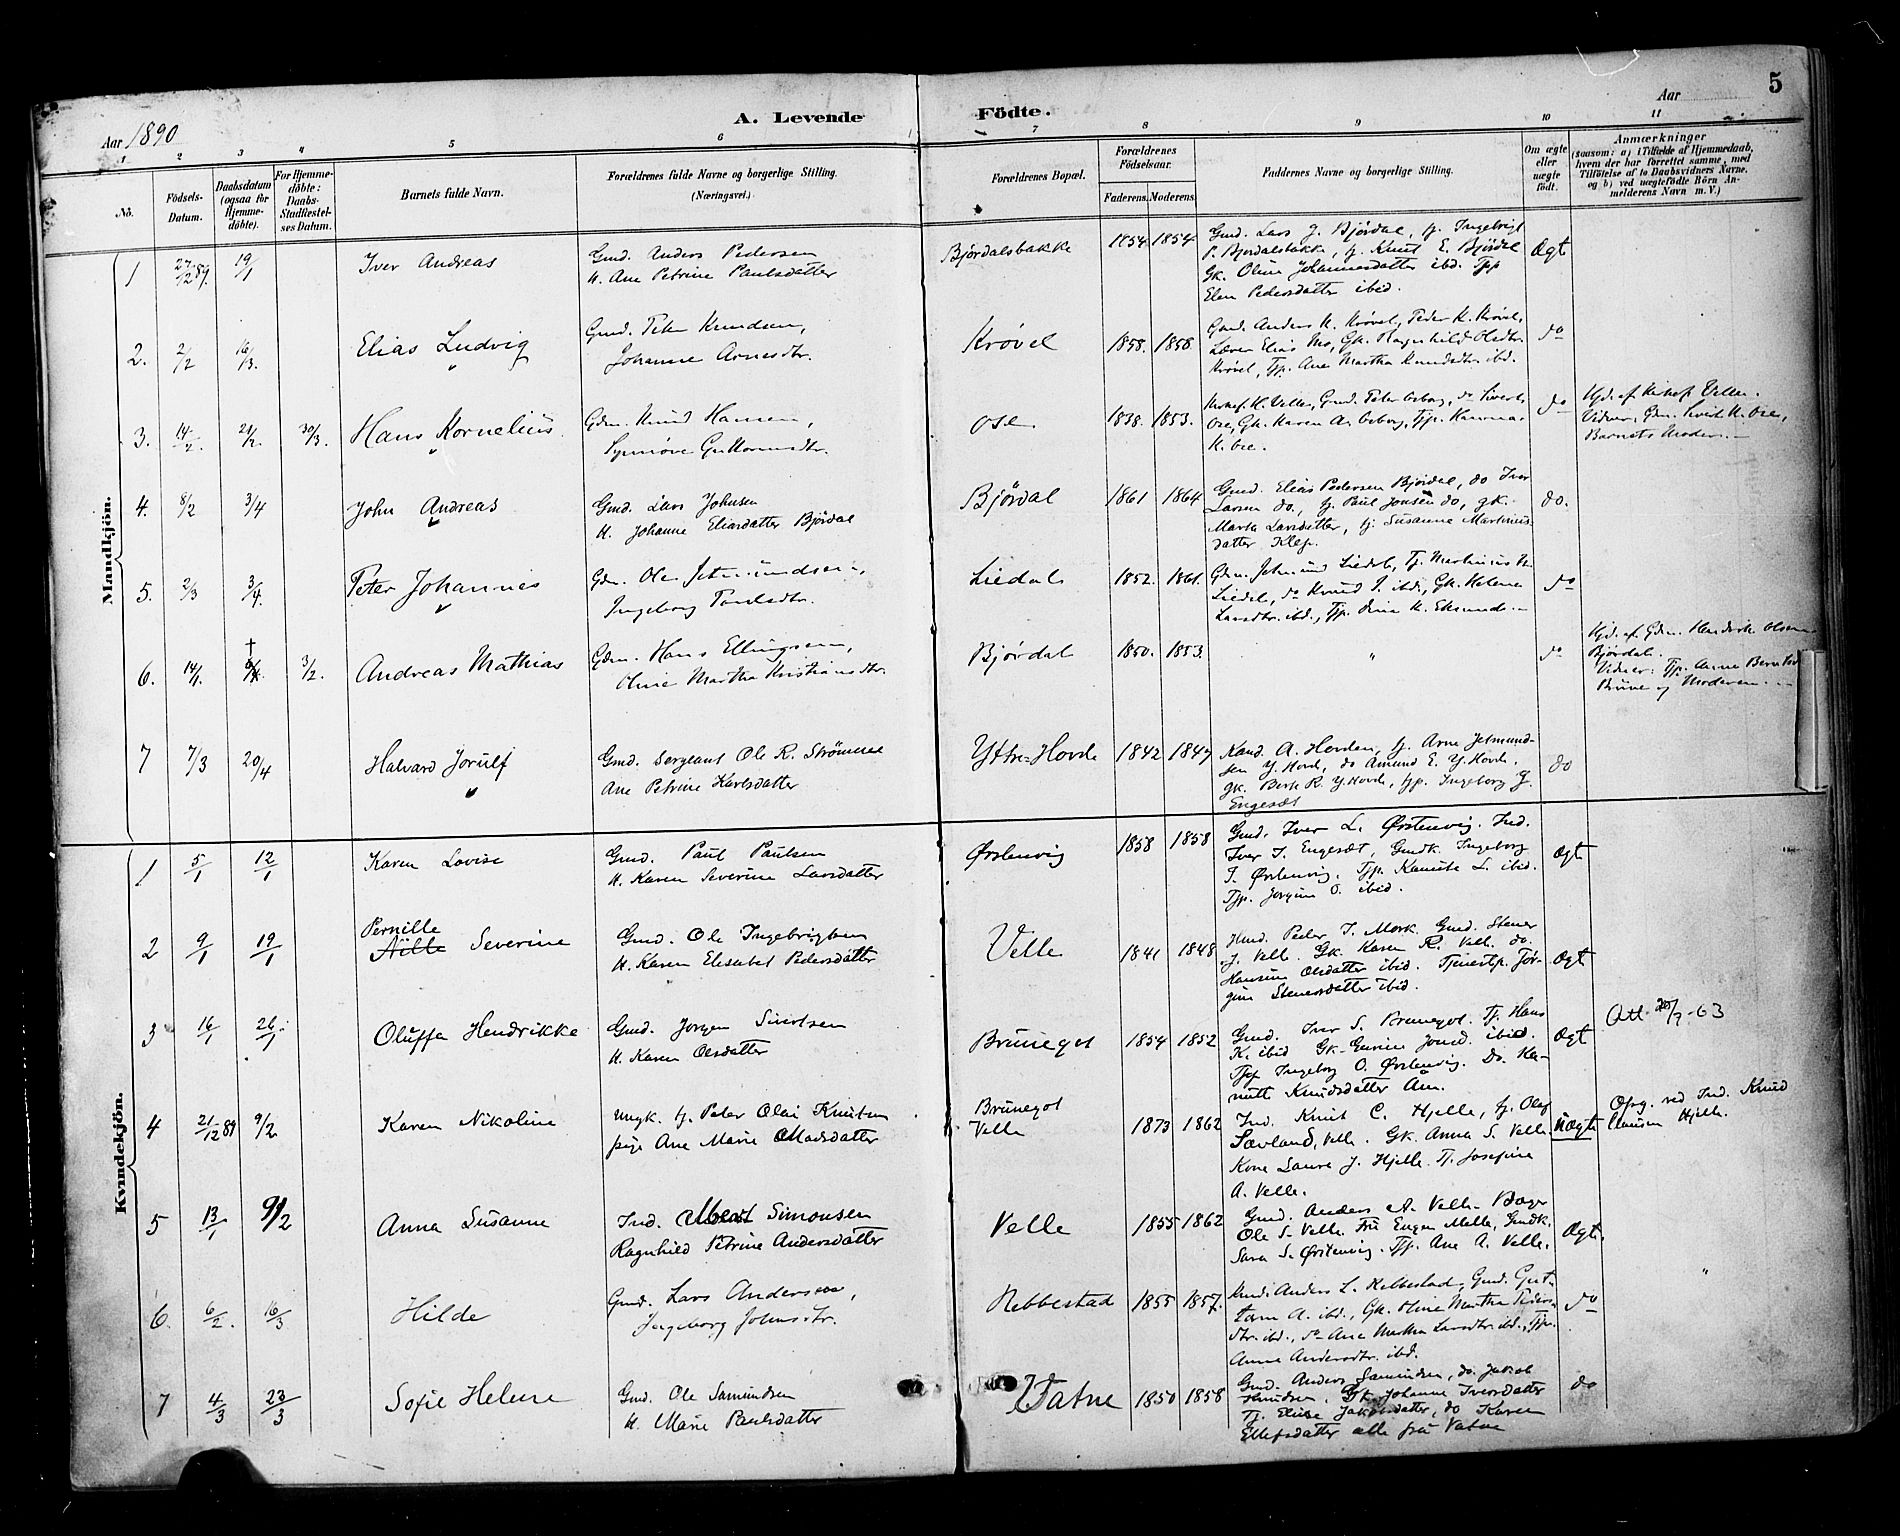 5
Aar 1890
A. Levende Födte.
Aar
1 2 3 4 5 6 7 8 9 10 11
Nô.
Födsels-Datum.
Daabsdatum (ogsaa for Hjemme-döbte).
For Hjemme-döbte: Daabs-Stadfæstel-ses Datum.
Barnets fulde Navn.
Forældrenes fulde Navne og borgerlige Stilling.
(Næringsvei.)
Forældrenes Bopæl.
Forældrenes Födselsaar.
Faderens. Moderens.
Faddernes Navne og borgerlige Stilling.
Om ægte eller uægte födt.
Anmærkninger
(saasom: a) i Tilfælde af Hjemmedaab, hvem der har forrettet samme, med Tilföielse af to Daabsvidners Navne, og b) ved uægtefödte Börn An-melderens Navn m. V.)
Mandkjön.
1 27/12 89. 19/1 Iver Andreas
Gmd. Anders Pedersen
H. Ane Petrine Paulsdatter
Bjørdalsbakke 1854 1854
Gmd. Lars J. Bjørdal, tj. Ingebrigt
P. Bjørdalsbakk, tj. Knut E. Bjørdal
Gk. Oline Johannesdatter ibd. Tjp
Elen Pedersdatter ibid.
Ægt
2. 2/2 16/3. Elias Ludvig
Gmd. Peter Knudsen,
Johanne Arnesdtr.
Krøvel 1858. 1858.
Gmd. Anders K. Krøvel, Peder K. Krøvel,
Lærer Elias Mo, Gk. Ragnhild Olsdtr.
Krøvel, Tjp. Ane Martha Knudsdtr. ibd.
do
3. 14/2. 21/2. 30/3. Hans Kornelius
Gdm. Knud Hansen,
Synnøve Guttormsdtr.
Ose 1838. 1853.
Kirkes. K. Velle, Gmd. Peter Aeborg, do Sivert
Ose, Gk. Karen A. Aeborg, Tjp. Hanna
K. Ose.
do
Hjd. af Kirkes. Velle.
Vidner: Gdm. Sivert K. Ose,
Barnets Moder.
4. 8/2 3/4 John Andreas
Gmd. Lars Johnsen
H. Johanne Eliasdatter Bjørdal
Bjørdal 1861 1864
Gmd. Elias Pedersen Bjørdal, do Iver
Larsen do., tj. Paul Jonsen do, gk.
Marta Larsdatter, tj. Susanne Martinus
datter Klep.
do.
5. 2/3 3/4. Peter Johannes
Gdm. Ole Jetmundsen,
Ingeborg Paulsdtr.
Liedal 1852. 1861.
Gdm. Jetmund Liedal, Tj. Martinus K.
Liedal, do Knud J. ibd., Gk. Helene
Larsdtr. ibd., Tjp. Oline K. Eksund.
do
6. 14/1. † 3/2. Andreas Mathias
Gdm. Hans Ellingsen,
Oline Martha Kristiansdtr.
Bjørdal 1850. 1853.
"
do
Hjd. af Gdm. Hendrik Olsen
Bjørdal.
Vidner: Tjp. Anne
Brune og Moderen.
7 7/3 20/4 Halvard Jørulf
Gmd. Sergeant Ole R. Strømme
Ane Petrine Karlsdatter
Yttre-Hovde 1842 1847
Kand. A. Hovden, tj. Arne Jetmund-
sen Y. Hovd, do Amund E. Y. Hovd.
gk. Berte R. Y. Hovd, tjp. Ingeborg G.
Engesæt
do
Kvindekjön.
1 5/1 12/1 Karen Lovise
Gmd. Paul Paulsen
H. Karen Severine Larsdatter
Ørstenvig 1858 1858
Gmd. Iver L. Ørstenvig. Ind.
Iver I. Engesæt, Gmdk. Ingeborg
T. Ørstenvig. Tjp. Kanute L. ibid.
Tjp. Jørgine O. ibid.
Ægt
2 9/1 19/1 Pernille Severine
Gmd. Ole Ingebrigtsen
H. Karen Elisabet Pedersdatter
Velle 1841 1848
Gmd. Peder J. Mork. Gmd. Stener
J. Velle. Gk. Karen R. Vell. do.
Hansine Olsdatter ibid. Tjenestp. Jør-
gine Stenersdatter ibid.
Ægt
3 16/1 26/1 Oluffa Hendrikke
Gmd. Jørgen Sivertsen
H. Karen Olsdatter
Brunegot 1854 1852
Gmd. Iver S. Brunegot. Tj. Hans
K. ibid Gk. Gurine Jonsd. ibid.
Tjp Ingeborg O. Ørstenvig. Do. Ka-
nutte Knudsdatter Aam.
Ægt
Att. 20/7-63
4 21/12 89 9/2 Karen Nikoline
Ungk. tj. Peter Olai Knutsen
pige Ane Marie Madsdatter
Brunegot
Velle
1873 1862
Ind. Knut C. Hjelle, tj. Olaf
Sævland, Velle. Gk. Anna S. Velle.
Kone Laura J. Hjelle. Tj. Josefine
A. Velle.
Uægte
Opg. ved Ind. Knud
Clausen Hjelle.
5 13/1 9/2 Anna Susanne
Ind. Albert Simonsen
Ragnhild Petrine Andersdatter
Velle 1855 1862
Gmd. Anders A. Velle. Bager
Ole S. Velle. Fru Eugen Melle, Gmdk.
Sara S. Ørstenvig. Tjp. Ane A. Velle.
Ægt.
6. 6/2. 16/3 Hilde
Gmd. Lars Andersen,
Ingeborg Johnsdtr.
Nebbestad 1855 1857.
Gmd. Anders L. Nebbestad, Gmd. Gut-
torm A. ibd., Gk. Oline Martha Peders-
dtr. ibd., do Ane Martha Larsdtr. ibd., Tjp.
Anne Andersdtr. ibd.
do
"
7 4/3 23/3 Sofie Helene
Gmd. Ole Samundsen
H. Marie Paulsdatter
Vatne 1850 1858
Gmd. Anders Samundsen, do. Jakob
Knudsen, Gk. Johanne Iversdatter
Tj. Elise Jakobsdatter, do Karen
Ellefsdatter alle fra Vatne
do